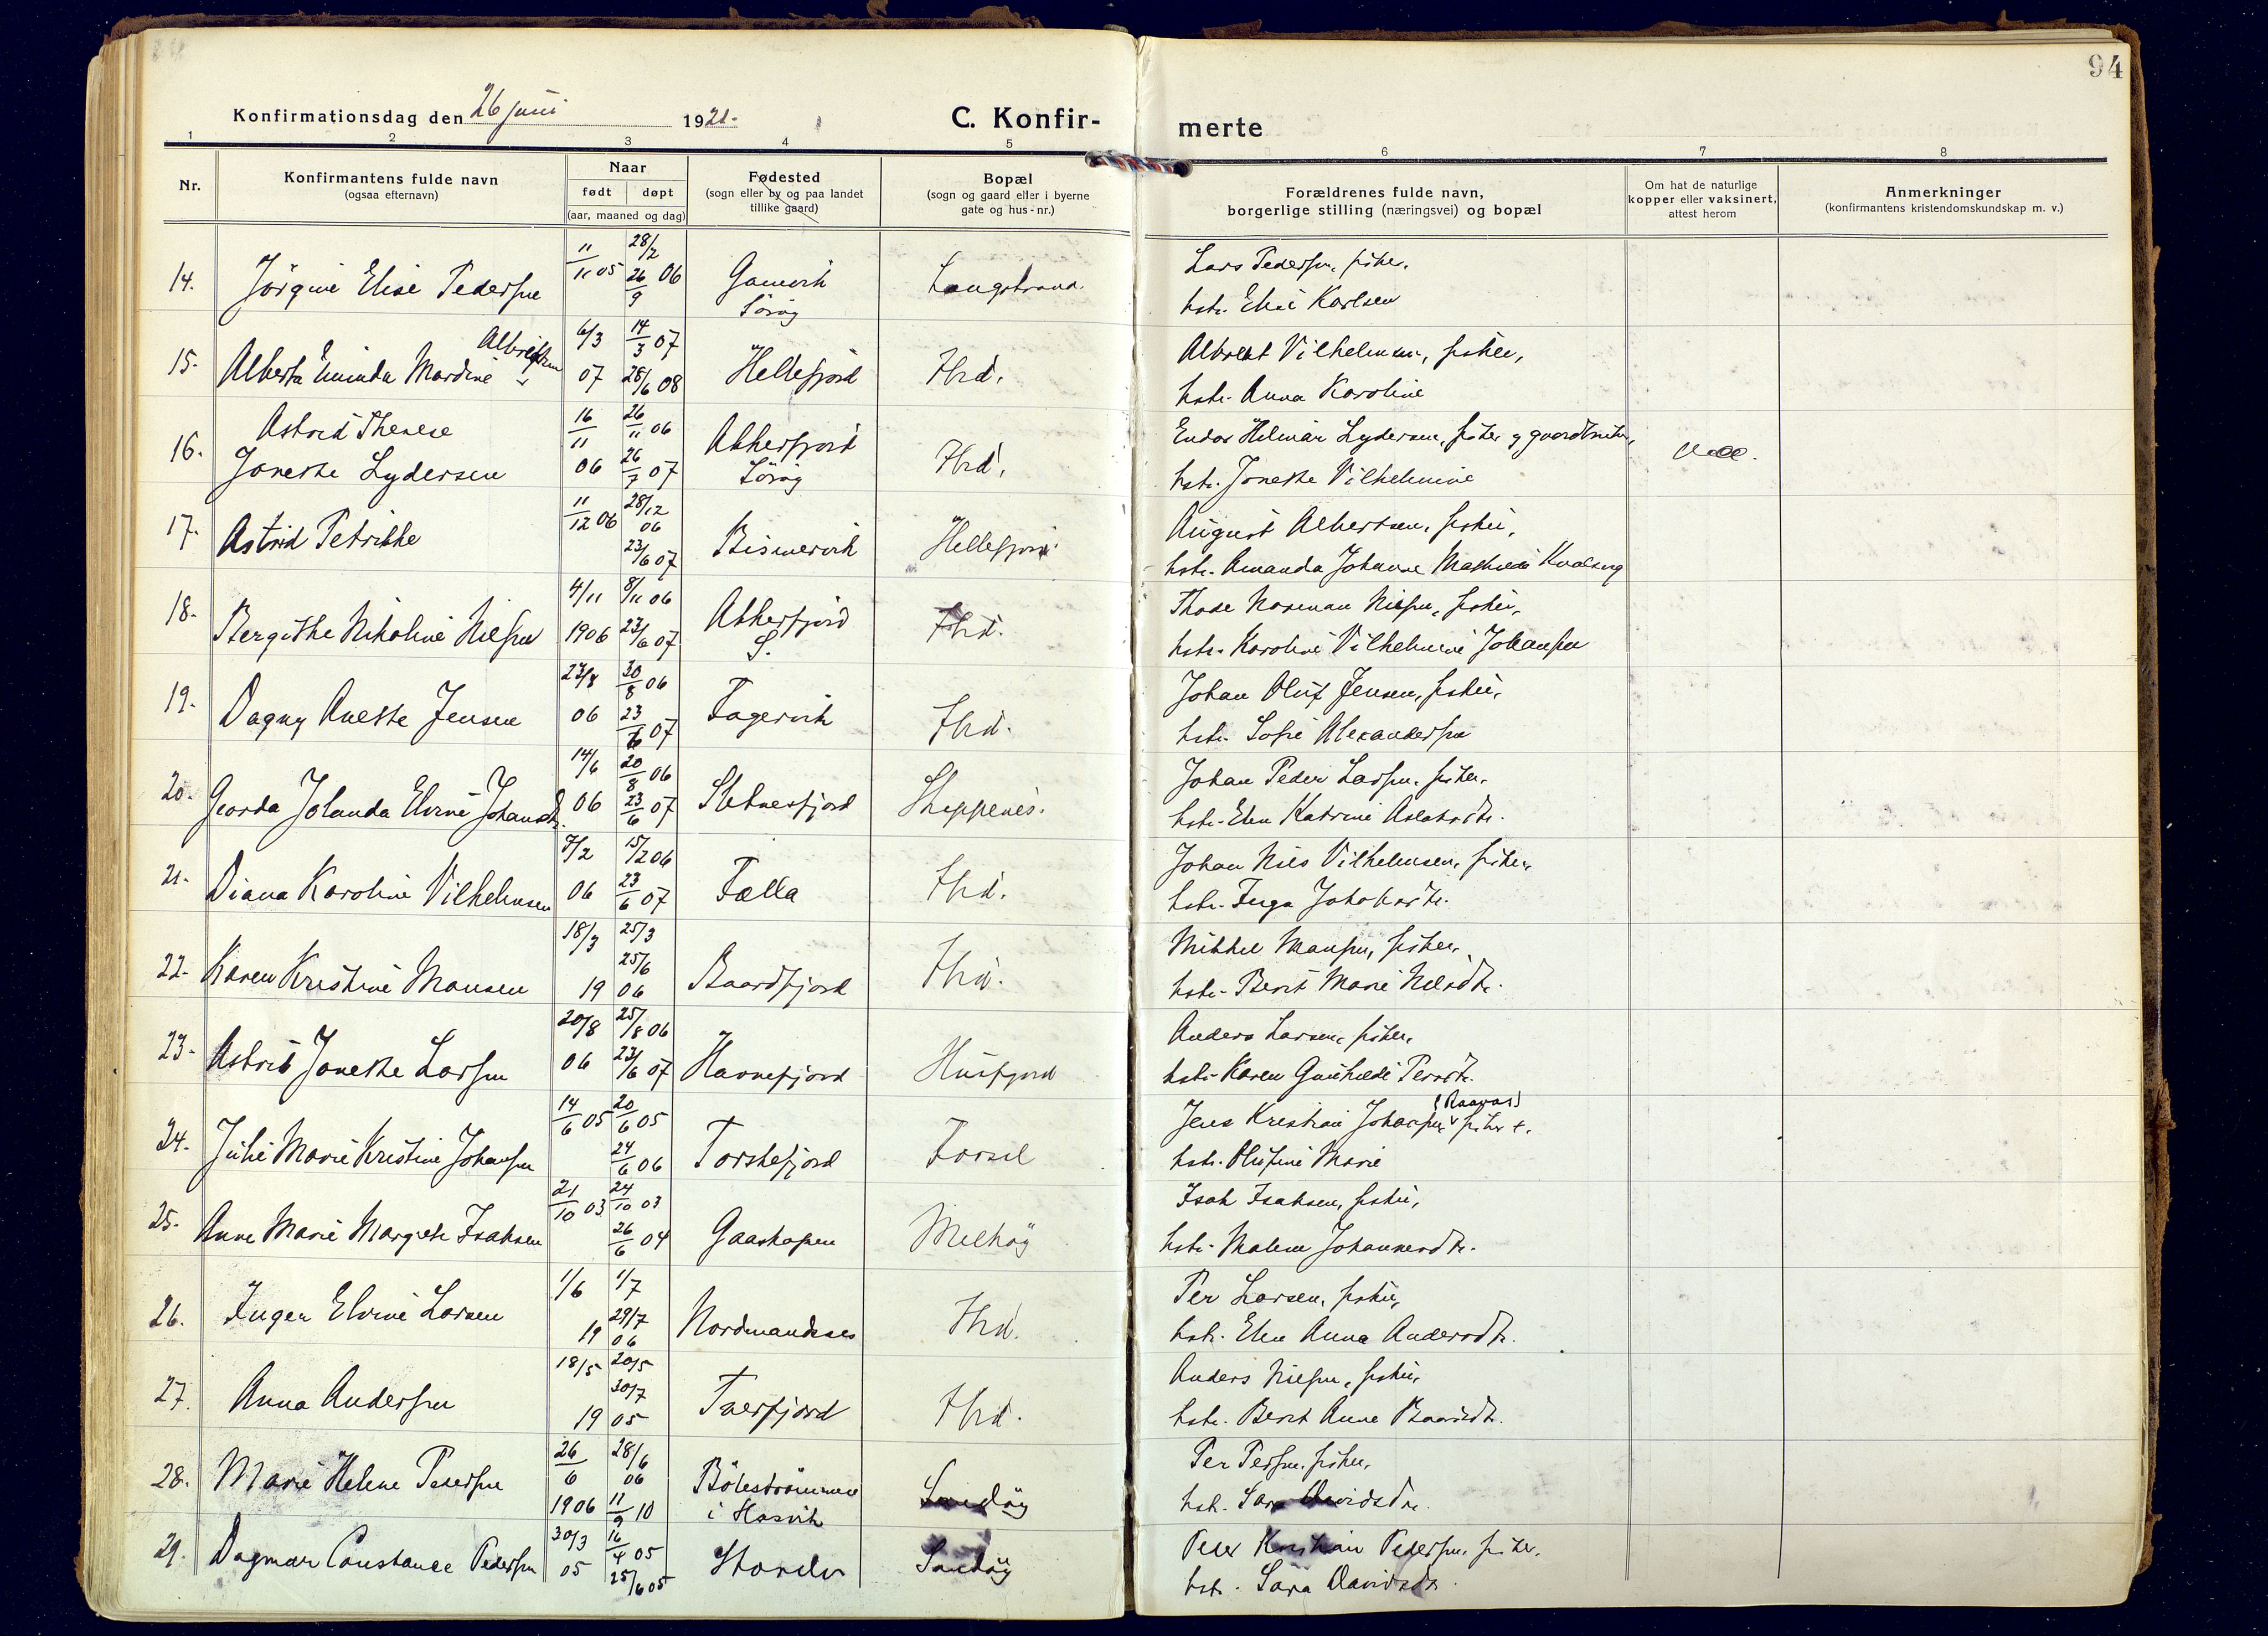 94
Konfirmationsdag den 26 juni 1921.
C. Konfir-
merte
1 2 3 4 5 6 7 8
Nr.
Konfirmantens fulde navn
(ogsaa efternavn)
Naar
født døpt
(aar, maaned og dag)
Fødested
(sogn eller by og paa landet
tillike gaard)
Bopæl
(sogn og gaard eller i byerne
gate og hus-nr.)
Forældrenes fulde navn,
borgerlige stilling (næringsvei) og bopæl
Om hat de naturlige
kopper eller vaksinert,
attest herom
Anmerkninger
(konfirmantens kristendomskundskap m. v.)
14. Jörgine Elise Pedersen 11/11 05 28/2 26/9 06 Gamvik Sörøy Langstrand
Lars Pedersen, fisker,
hstr. Elise Karlsen
15. Alberta Eminda Mardine Albrigtsen 6/3 07 14/3 07 28/6 08 Hellefjord Ibid.
Albrekt Vilhelmsen, fisker,
hstr. Anna Karoline
16. Astrid Therese
Janette Lydersen 16/11 06 26/11 06 26/7 07 Akkerfjord Sörøy Ibid.
Endor Hilmar Lydersen, fisker og gaardbruker,
hstr. Janette Vilhelmine
17. Astrid Petrikke 11/12 06 28/12 06 23/6 07 Bismervik Hellefjord
August Albertsen, fisker,
hstr. Amanda Johanne Mathilde Kvalsug
18. Bergithe Nikoline Nilsen 4/11 1906 8/11 06 23/6 07 Akkerfjord S. Ibid.
Thode Norman Nilsen, fisker,
hstr. Karoline Vilhelmine Johansen
19. Dagny Anette Jensen 23/8 06 30/8 06 23/6 07 Fagervik Ibid.
Johan Oluf Jensen, fisker,
hstr. Sofie Alexandersen
20. Gjorda Jolanda Elvine Johansdtr. 14/6 06 20/8 06 23/6 07 Sletnesfjord Skippernes.
Johan Peder Larsen, fisker,
hstr. Elen Katrine Aslaksdtr.
21. Diana Karoline Vilhelmsen 7/2 06 15/2 06 23/6 07 Fella Ibid.
Johan Nils Vilhelmsen, fisker,
hstr. Inga Johansdtr.
22. Karen Kristine Monsen 18/3 25/3 25/6 19 06 Baardfjord Ibid.
Mikkel Monsen, fisker,
hstr. Berit Marie Nilsdtr.
23. Astrid Janette Larsen 20/8 06 25/8 06 23/6 07 Havnefjord Husfjord
Anders Larsen, fisker,
hstr. Karen Gunhilde Persdtr.
24. Julie Marie Kristine Johansen 14/6 05 20/6 05 24/6 06 Torskefjord Forsöl
Jens Kristian Johansen fisker +.
hstr. Olufine Marie
25. Anne Marie Margrete Isaksen 21/10 03 24/10 03 26/6 04 Gaaskopen Melköy
Isak Isaksen, fisker,
hstr. Malene Johannesdtr.
26. Inger Elvine Larsen 1/6 1/7 29/7 19 06 Nordmandsnes Ibid.
Per Larsen, fisker,
hstr. Elen Anna Andersdtr.
27. Anna Andersen 18/5 20/5 30/7 19 05 Tverfjord Ibid.
Anders Nilsen, fisker,
hstr. Berit Anne Baardsdtr.
28. Marie Helene Pedersen 26/6 1906 28/6 06 11/9 10 Bölestrømmen i Hasvik Sandöy
Per Persen, fisker,
hstr. Sara Davidsdtr.
29. Dagmar Constance Pedersen 30/3 05 16/4 05 25/6 05 Sandöy
Peder Kristian Pedersen, fisker,
hstr. Sara Davidsdtr.